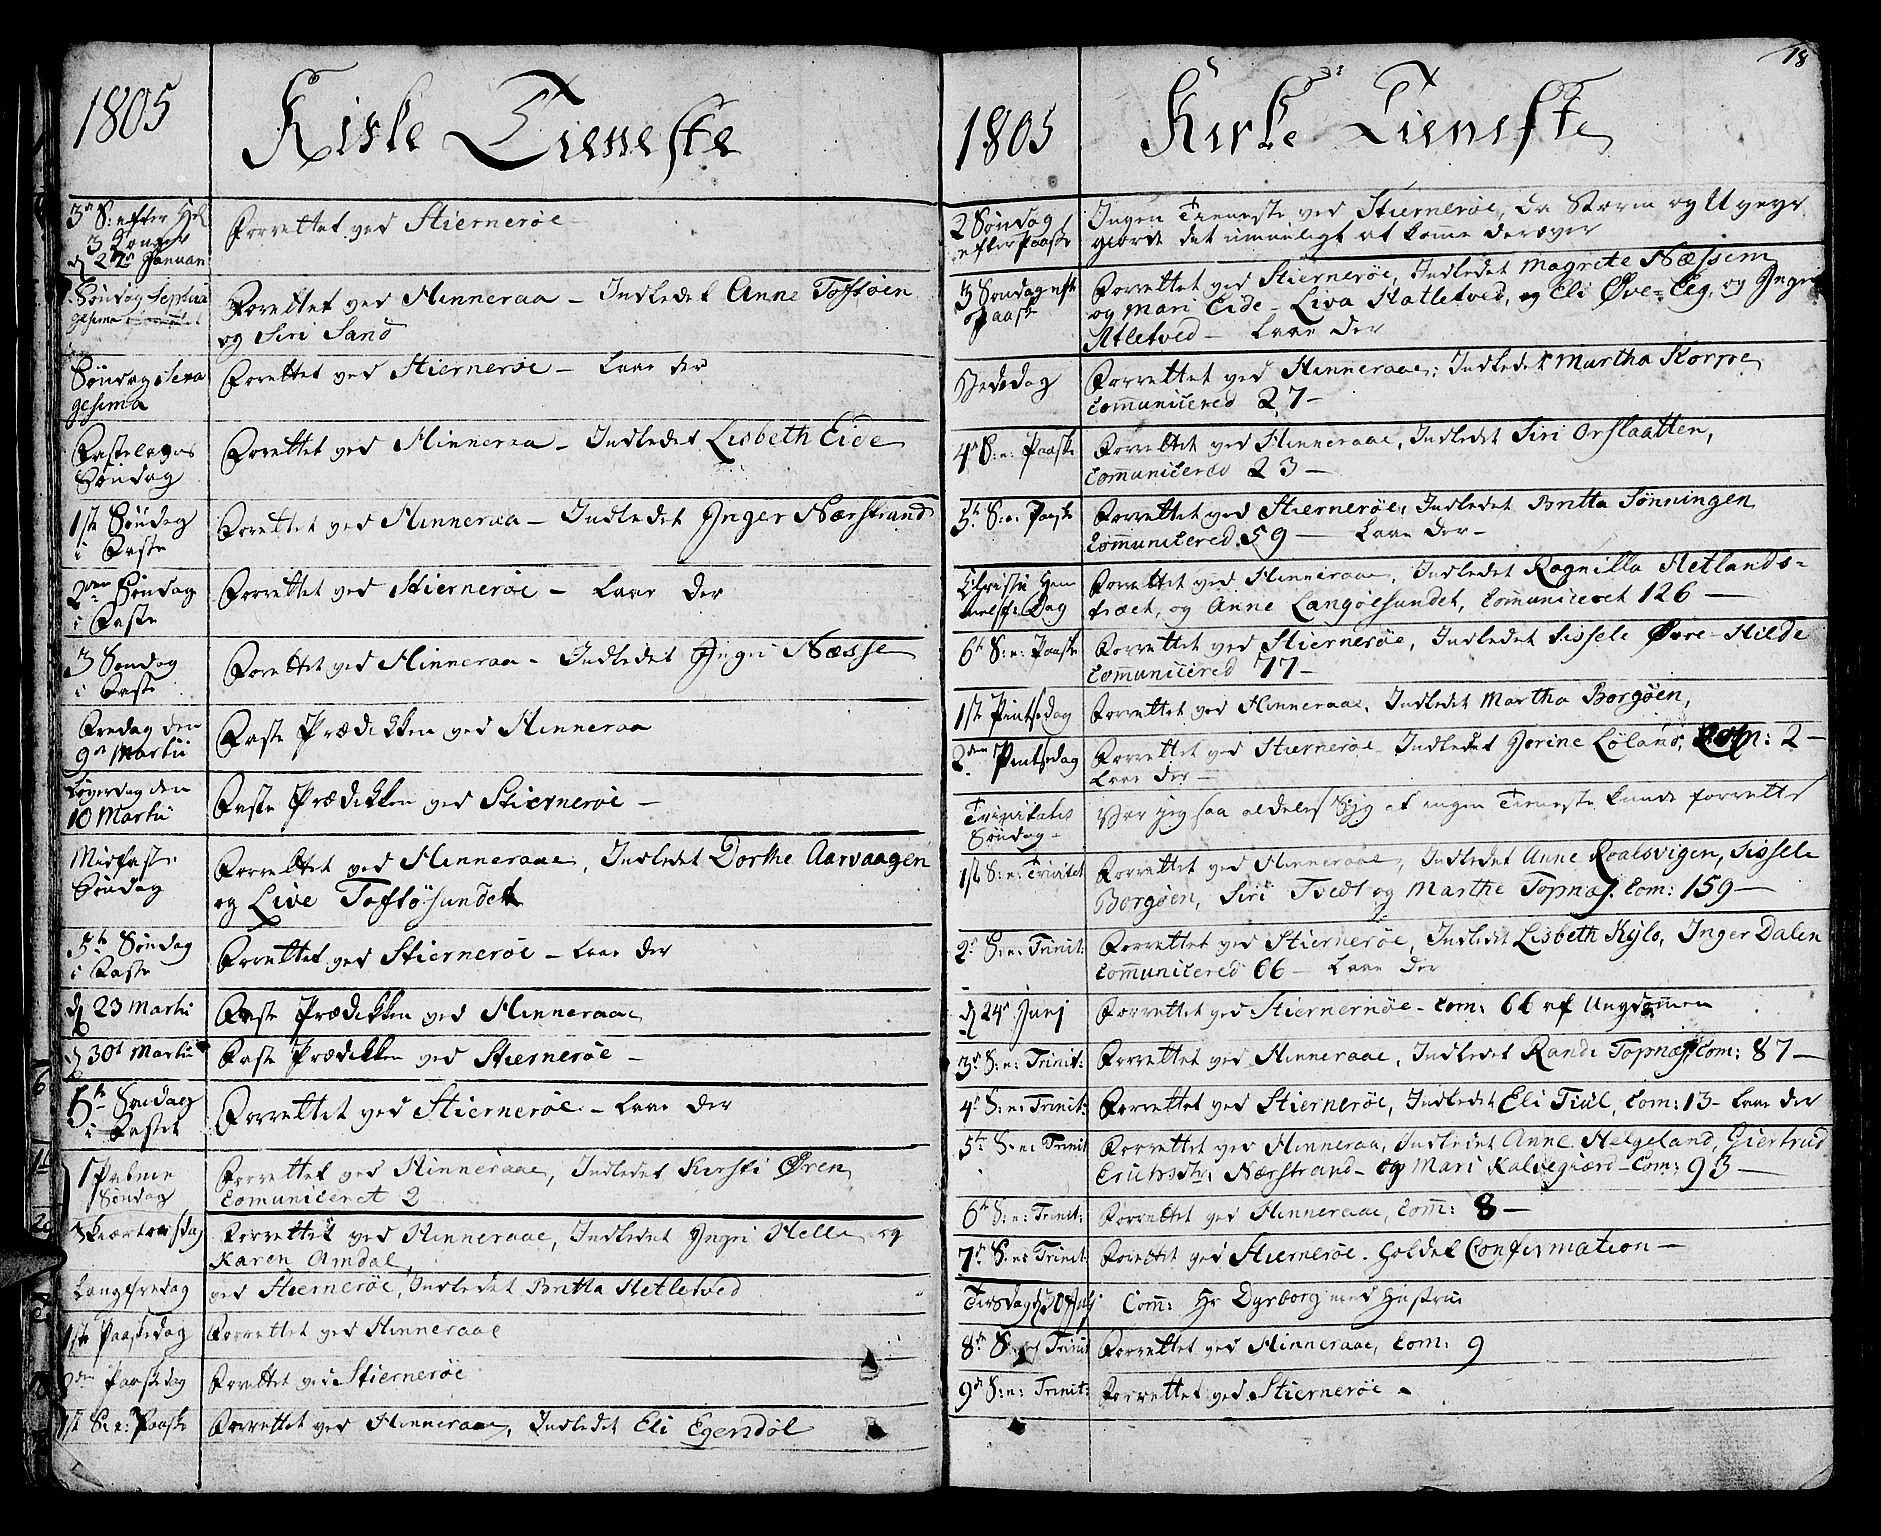 1805
Kirke Tieneste
3de S: efter Hel
3 Konger
d 27de Januari
Forrettet ved Stiernerøe
Søndag Septua
gesima
Forrettet ved Hinneraa – Indledet Anne Toftøen
og Siri Sand
Søndag Sexa
gesima
Forrettet ved Stiernerøe – Laae der
Fastelavns
Søndag
Forrettet ved Hinneraa – Indledet Lisbeth Eide
1ste Søndag
i Faste
Forrettet ved Hinneraa – Indledet Inger Nærstrand
2den Søndag
i Faste
Forrettet ved Stiernerøe – Laae der
3 Søndag
i Faste
Forrettet ved Hinneraa – Indledet Ingri Næsse
Fredag den
9de Martii
Faste Prædikken ved Hinneraa
Løverdag den
10 Martii
Faste Prædikken ved Stiernerøe –
Midfaste
Søndag
Forrettet ved Hinneraae, Indledet Dorthe Aarvaagen
og Live Toftøsundet
5te Søndag
i Faste
Forrettet ved Stiernerøe – Laae der
d 23 Martii
Faste Prædikken ved Hinneraae
d 30te Martii
Faste Prædikken ved Stiernerøe –
5te Søndag
i Fasten
Forrettet ved Stiernerøe – Laae der
Palme
Søndag
Forrettet ved Hinneraae, Indledet Kirsti Øren
Comuniceret 2
Skiertorsdag
Forrettet ved Hinneraae, Indledet Ingri Helle og
Karen Amdal,
Langfredag
ved Stiernerøe, Indledet Britta Hetletved
1ste Paaskedag
Forrettet ved Hinneraae
2den Paaskedag
Forrettet ved Stiernerøe
1st S: e: Paaske
Forrettet ved Hinneraae, Indledet Eli Egerdøl
18
1805
Kirke Tieneste
2 Søndag
efter Paaske
Ingen Tieneste ved Stiernerøe, da Storm og Uveyr
giorde det umueligt at komme derover
3 Søndag eft
Paaske
Forrettet ved Stiernerøe, Indledet Magrete Næssem
og Mari Eide – Liva Hatletved, og Eli Øve-Eeg, og Inger
Atletved – Laae der
Bededag
Forrettet ved Hinneraae; Indledet Martha Norpoe
Communicered 27 –
4de S: e: Paaske
Forrettet ved Hinneraae, Indledet Siri Orslaatten,
Communicered 23 –
5te S: e: Paaske
Forrettet ved Stiernerøe, Indledet Britta Sønningen
Communicered 59 – Laae der –
Christi Him
melfartsdag
Forrettet ved Hinneraae, Indledet Ragnilla Hetlands-
træet, og Anne Langøesundet, Communiceret 126 –
6te S: e: Paaske
Forrettet ved Stiernerøe, Indledet Sissele Øvre-Hilde
Communicered 77 –
1ste Pintsedag
Forrettet ved Hinneraae, Indledet Martha Borgøen,
2den Pintsedag
Forrettet ved Stiernerøe Indledet Jorine Løland, Com: 2 –
Laae der –
Trinitatis
Søndag –
Var jeg saa aldeles Syg at ingen Tieneste kunde forrettes
1st S: e: Trinitet
Forrettet ved Hinneraae, Indledet Anne Roalsvigen, Sissele
Borgøen, Siri Tvedt og Marthe Topnas. Com: 159 –
2d S: e: Trinit:
Forrettet ved Stiernerøe, Indledet Lisbeth Kylo, Inger Dalen
Communicered 66 – Laae der
d 24de Junj
Forrettet ved Stiernerøe – Com: 66 af Ungdommen
3d S: e: Trinit:
Forrettet ved Hinneraae, Indledet Randi Topnæs Com: 87 –
4d S: e: Trinit:
Forrettet ved Stiernerøe, Indledet Eli Tiul, Com: 13 – Laae der
5te S: e: Trinit
Forrettet ved Hinneraa, Indledet Anne Helgeland, Giertrud
Erichsdtr: Nærstrand – og Mari Kalvegiærd – Com: 93 –
6te S: e: Trinit:
Forrettet ved Hinneraae, Com: 8 –
7de S: e: Trinit
Forrettet ved Stiernerøe. Holdet Confirmation –
Tirsdag d 30 Julj
Com: Hr Dyrborg med Hustrue
8de S: e: Trinit
Forrettet ved Hinneraae, Com: 9
9de S: e: Trinit:
Forrettet ved Stiernerøe –